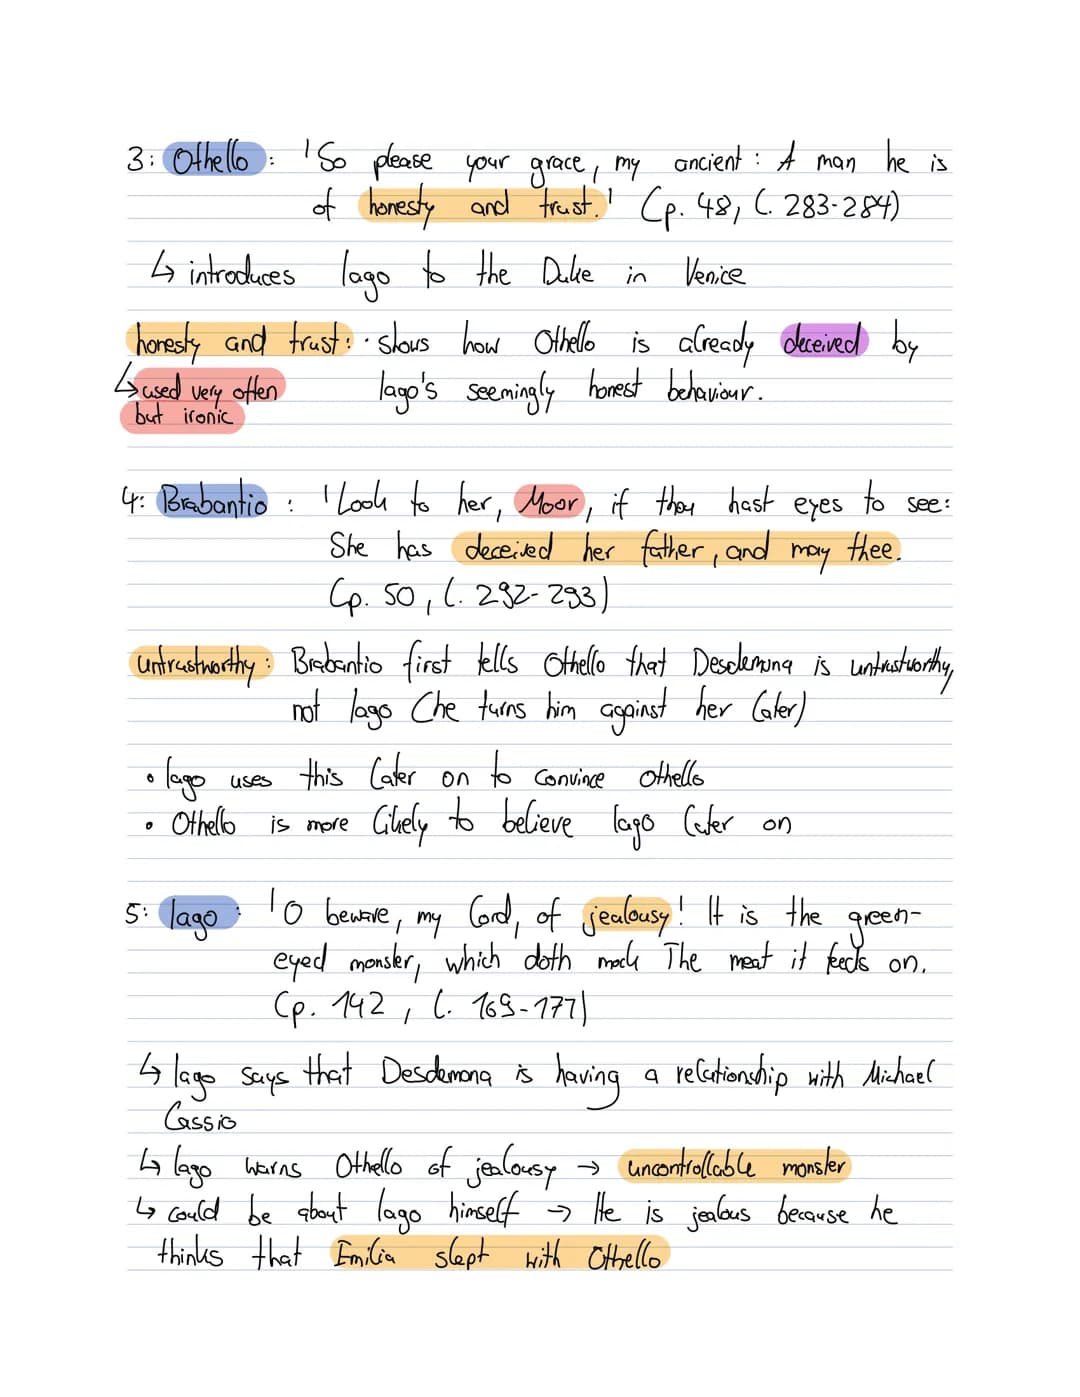 3: Othello : 'So please your grace, my ancient : A man he is
of honesty and trust.' (p. 48, l. 283-284)
↳ introduces Iago to the Duke in Venice
honesty and trust: • shows how Othello is already deceived by
↳ used very often Iago's seemingly honest behaviour.
but ironic
4: Brabantio : 'Look to her, Moor, if thou hast eyes to see:
She has deceived her father, and may thee.
(p. 50, l. 292-293)
untrustworthy : Brabantio first tells Othello that Desdemona is untrustworthy,
not Iago (he turns him against her later)
• Iago uses this later on to convince Othello
• Othello is more likely to believe Iago later on
5: Iago : 'O beware, my lord, of jealousy! It is the green-
eyed monster, which doth mock The meat it feeds on.
(p. 142, l. 169-177)
↳ Iago says that Desdemona is having a relationship with Michael
Cassio
↳ Iago warns Othello of jealousy → uncontrollable monster
↳ could be about Iago himself → He is jealous because he
thinks that Emilia slept with Othello